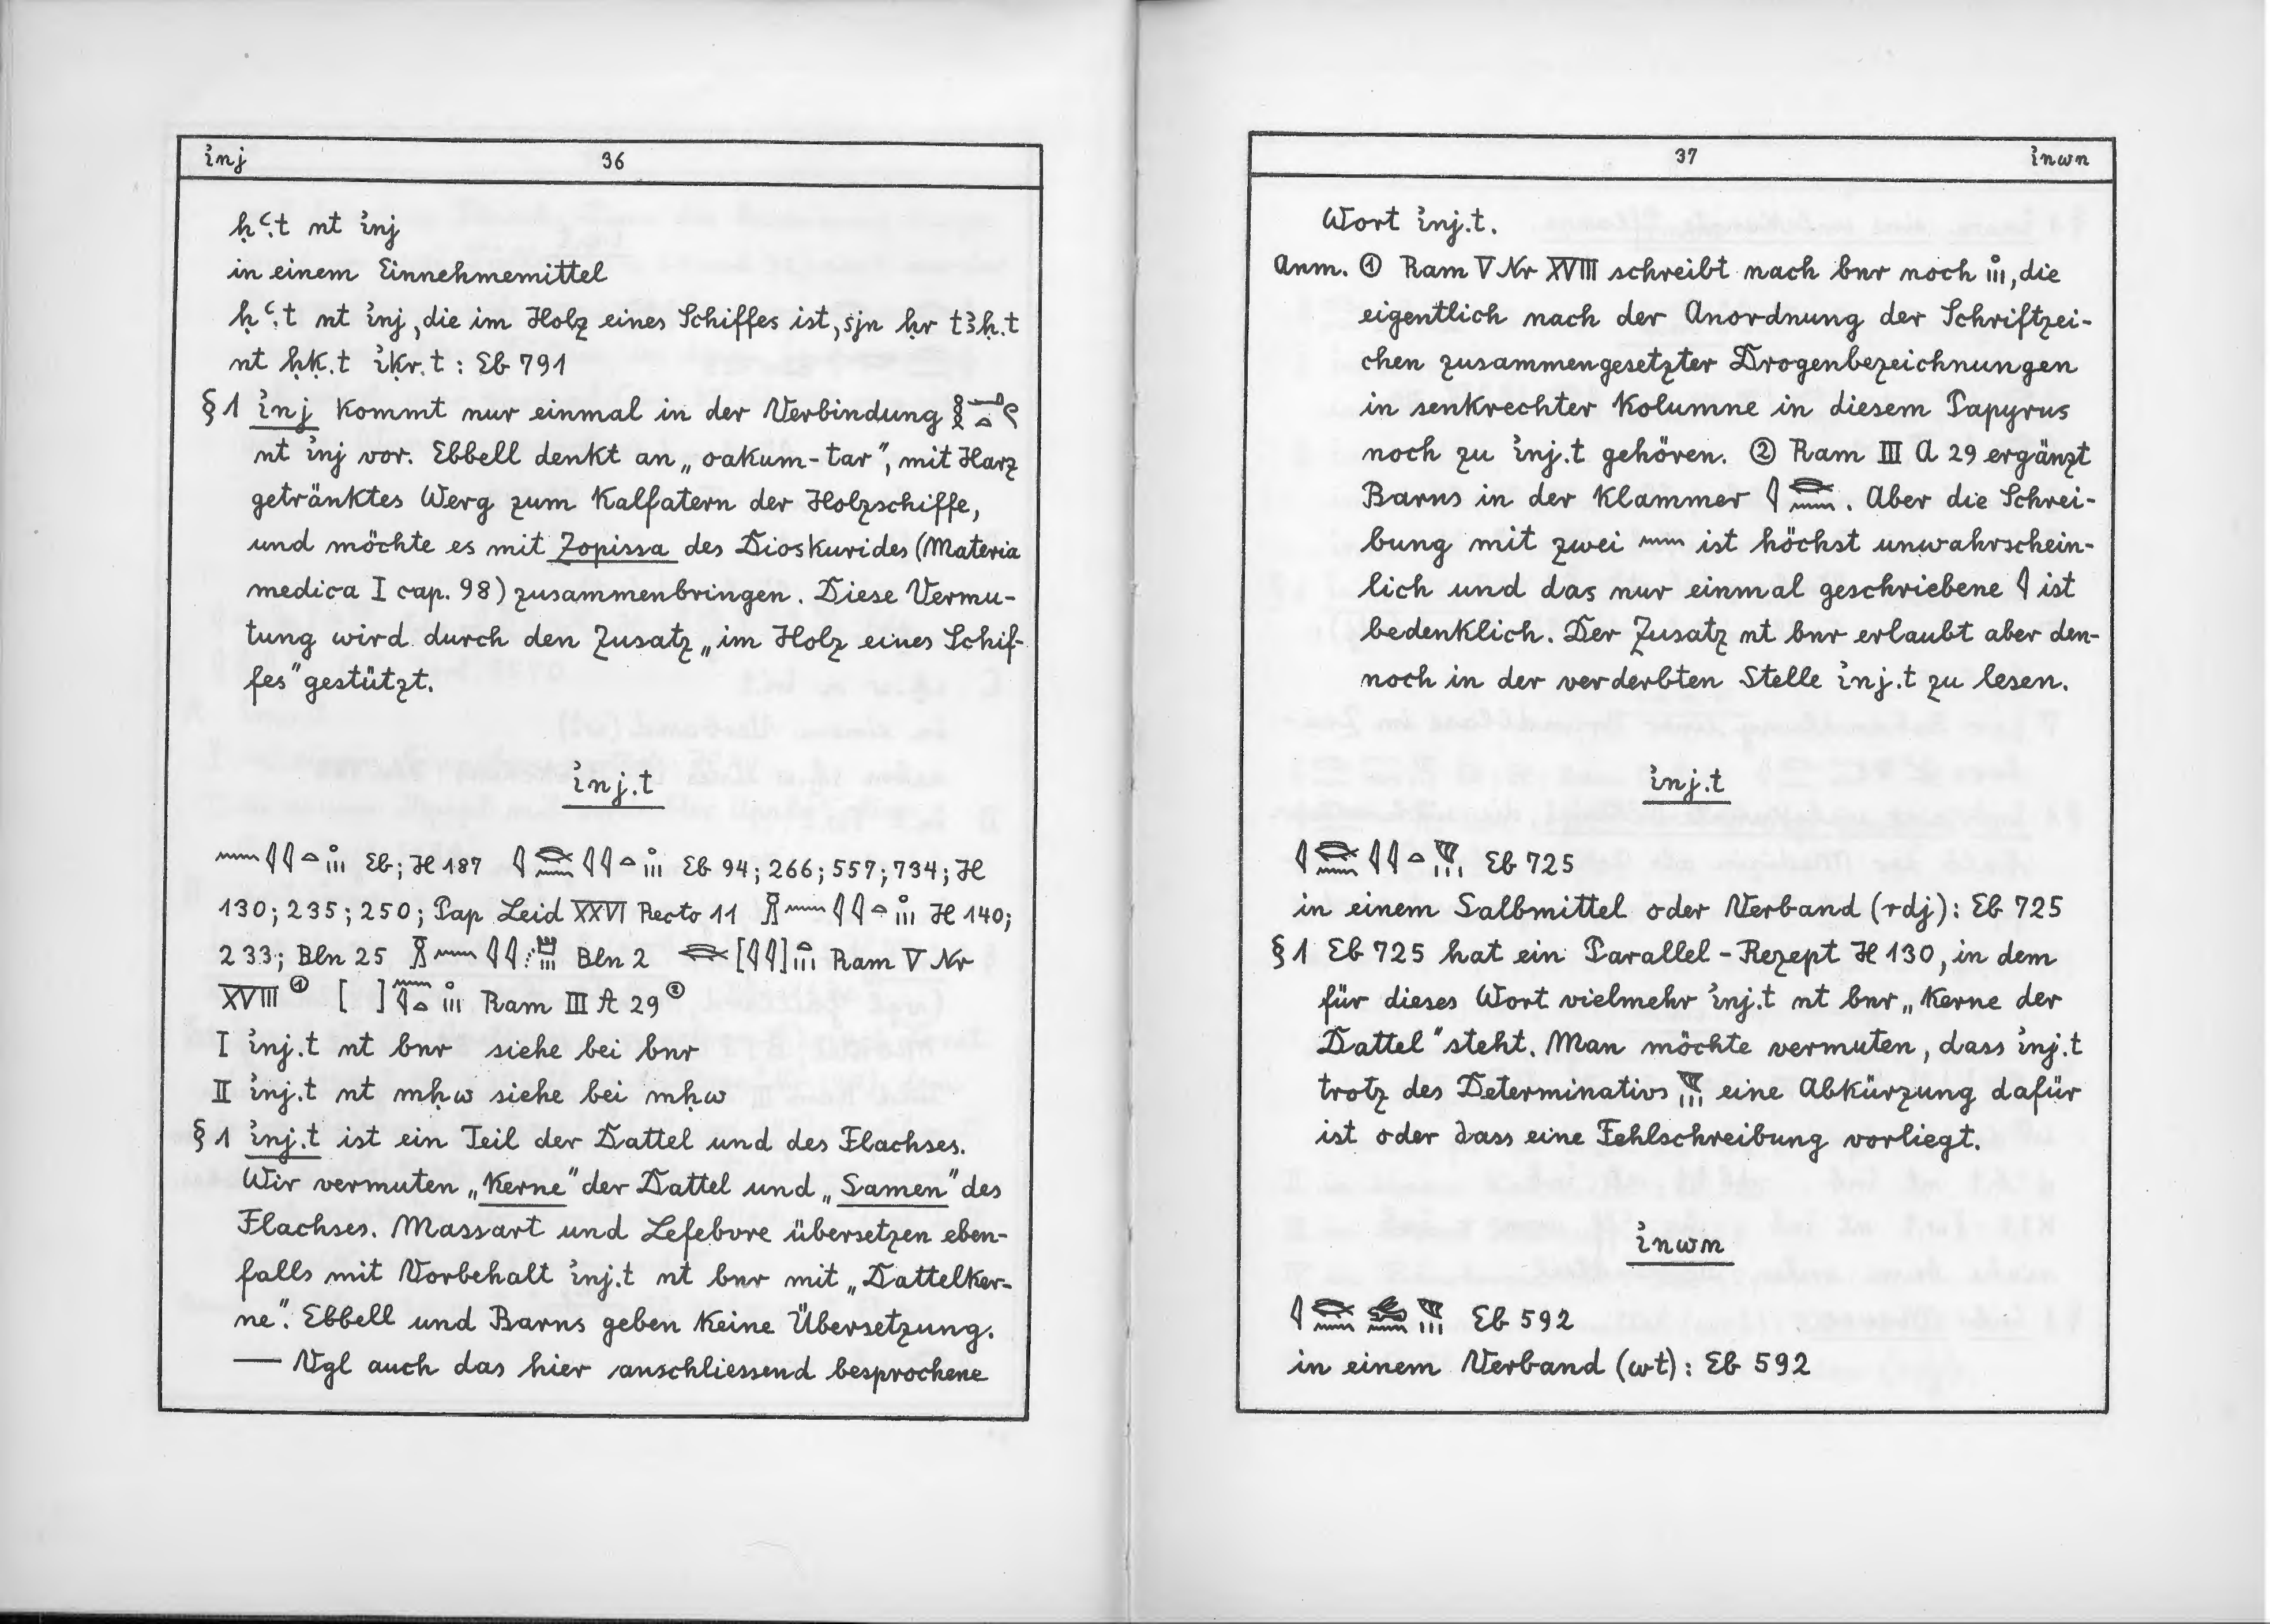 ỉnj 36
ḥꜥ.t nt ỉnj
in einem Einnehmemittel
ḥꜥ.t nt ỉnj, die im Holz eines Schiffes ist, sjn ḥr tꜣḥ.t
nt ḥḳ.t ỉḳr.t : Eb 791
§ 1 ỉnj kommt nur einmal in der Verbindung 𓎛𓂝𓏏𓍢
nt ỉnj vor. Ebbell denkt an „oakum-tar", mit Harz
getränktes Werg zum Kalfatern der Holzschiffe,
und möchte es mit Zopissa des Dioskurides (Materia
medica I cap. 98) zusammenbringen. Diese Vermu-
tung wird durch den Zusatz „im Holz eines Schif-
fes" gestützt.
ỉnj.t
𓈖𓇋𓇋𓏏𓈒𓏥 Eb; H 187 𓇋𓆛𓈖𓇋𓇋𓏏𓈒𓏥 Eb 94; 266; 557; 734; H
130; 235; 250; Pap Leid XXVI Recto 11 𓏎𓈖𓇋𓇋𓏏𓈒𓏥 H 140;
233; Bln 25 𓏎𓈖𓇋𓇋 Bln 2 𓆛[𓇋𓇋]𓏏𓏥 Ram V Nr
XVIII ① [ ]𓈖𓇋𓏏𓈒𓏥 Ram III A 29 ②
I ỉnj.t nt bnr siehe bei bnr
II ỉnj.t nt mḥw siehe bei mḥw
§ 1 ỉnj.t ist ein Teil der Dattel und des Flachses.
Wir vermuten „Kerne" der Dattel und „Samen" des
Flachses. Massart und Lefebvre übersetzen eben-
falls mit Vorbehalt ỉnj.t nt bnr mit „Dattelker-
ne". Ebbell und Barns geben keine Übersetzung.
— Vgl auch das hier anschliessend besprochene
37 ỉnwn
Wort ỉnj.t.
Anm. ① Ram V Nr XVIII schreibt nach bnr noch 𓈒𓏥, die
eigentlich nach der Anordnung der Schriftzei-
chen zusammengesetzter Drogenbezeichnungen
in senkrechter Kolumne in diesem Papyrus
noch zu ỉnj.t gehören. ② Ram III A 29 ergänzt
Barns in der Klammer 𓇋𓆛𓈖. Aber die Schrei-
bung mit zwei 𓈖 ist höchst unwahrschein-
lich und das nur einmal geschriebene 𓇋 ist
bedenklich. Der Zusatz nt bnr erlaubt aber den-
noch in der verderbten Stelle ỉnj.t zu lesen.
ỉnj.t
𓇋𓆛𓈖𓇋𓇋𓏏𓆰𓏥 Eb 725
in einem Salbmittel oder Verband (rdj): Eb 725
§ 1 Eb 725 hat ein Parallel-Rezept H 130, in dem
für dieses Wort vielmehr ỉnj.t nt bnr „Kerne der
Dattel" steht. Man möchte vermuten, dass ỉnj.t
trotz des Determinativs 𓆰𓏥 eine Abkürzung dafür
ist oder dass eine Fehlschreibung vorliegt.
ỉnwn
𓇋𓆛𓈖𓃹𓈖𓆰𓏥 Eb 592
in einem Verband (wt): Eb 592